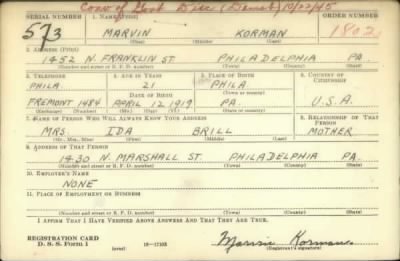 Conv of Govt Dec (Dment) 10/22/45
SERIAL NUMBER 1. NAME (Print) ORDER NUMBER
573 MARVIN KORMAN 1802
(First) (Middle) (Last)
2. ADDRESS (Print)
1452 N. FRANKLIN ST PHILADELPHIA PA.
(Number and street or R. F. D. number) (Town) (County) (State)
3. TELEPHONE 4. AGE IN YEARS 5. PLACE OF BIRTH 6. COUNTRY OF CITIZENSHIP
PHILA. 21 PHILA
DATE OF BIRTH (Town or county)
FREMONT 1484 APRIL 12 1919 PA. U.S.A.
(Exchange) (Number) (Mo.) (Day) (Yr.) (State or country)
7. NAME OF PERSON WHO WILL ALWAYS KNOW YOUR ADDRESS 8. RELATIONSHIP OF THAT PERSON
MRS IDA BRILL MOTHER
(Mr., Mrs., Miss) (First) (Middle) (Last)
9. ADDRESS OF THAT PERSON
1430 N. MARSHALL ST. PHILADELPHIA PA.
(Number and street or R. F. D. number) (Town) (County) (State)
10. EMPLOYER'S NAME
NONE
11. PLACE OF EMPLOYMENT OR BUSINESS
(Number and street or R. F. D. number) (Town) (County) (State)
I AFFIRM THAT I HAVE VERIFIED ABOVE ANSWERS AND THAT THEY ARE TRUE.
REGISTRATION CARD
D. S. S. Form 1 (over) 16—17105 Marvin Korman
(Registrant's signature)